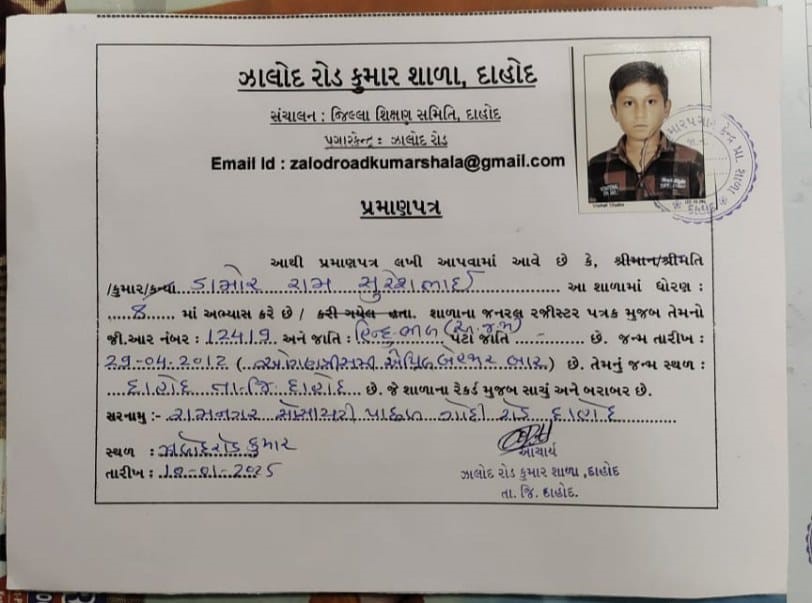 ઝાલોદ રોડ કુમાર શાળા, દાહોદ
સંચાલન : જિલ્લા શિક્ષણ સમિતિ, દાહોદ
પગારકેન્દ્ર : ઝાલોદ રોડ
Email Id : zalodroadkumarshala@gmail.com
પ્રમાણપત્ર
આથી પ્રમાણપત્ર લખી આપવામાં આવે છે કે, શ્રીમાન/શ્રીમતિ
/કુમાર/કન્યા ડામોર રામ સુરેશભાઈ આ શાળામાં ધોરણ :
8 માં અભ્યાસ કરે છે / કરી ગયેલ હતા. શાળાના જનરલ રજીસ્ટર પત્રક મુજબ તેમનો
જી.આર નંબર : 12419 અને જાતિ : હિન્દુ ભીલ (અ.જ.જા) પેટા જાતિ - છે. જન્મ તારીખ :
29-04-2012 (ઓગણત્રીસમી એપ્રિલ બેહજાર બાર) છે. તેમનું જન્મ સ્થળ :
દાહોદ તા-જિ દાહોદ છે. જે શાળાના રેકર્ડ મુજબ સાચું અને બરાબર છે.
સરનામુ :- રામનગર સોસાયટી પાછળ ગોદી રોડ દાહોદ
સ્થળ : ઝાલોદરોડ કુમાર
તારીખ : 10-01-2025
આચાર્ય
ઝાલોદ રોડ કુમાર શાળા ,દાહોદ
તા. જિ. દાહોદ.